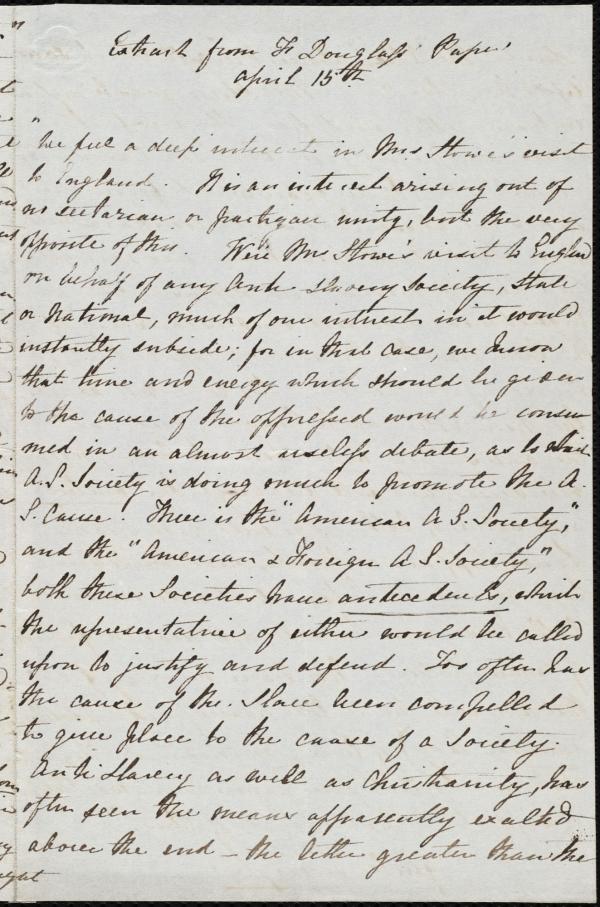 Extract from F Douglass' Paper
April 15th
"We feel a deep interest in Mrs Stowe's visit
to England. It is an interest arising out of
no sectarian or partizan unity, but the very
opposite of this. Were Mrs Stowe's visit to England
on behalf of any Anti Slavery Society, State
or National, much of our interest in it would
instantly subside; for in that case, we know
that time and energy which should be given
to the cause of the oppressed would be consu
med in an almost useless debate, as to which
A.S. Society is doing much to promote the A.
S. Cause. There is the "American A S. Society,"
and the "American & Foreign A S. Society,"
both these Societies have antecedents, which
the representative of either would be called
upon to justify and defend. Too often has
the cause of the Slave been compelled
to give place to the cause of a Society.
Anti Slavery as well as Christianity, has
often seen the means apparently exalted
above the end – the letter greater than the